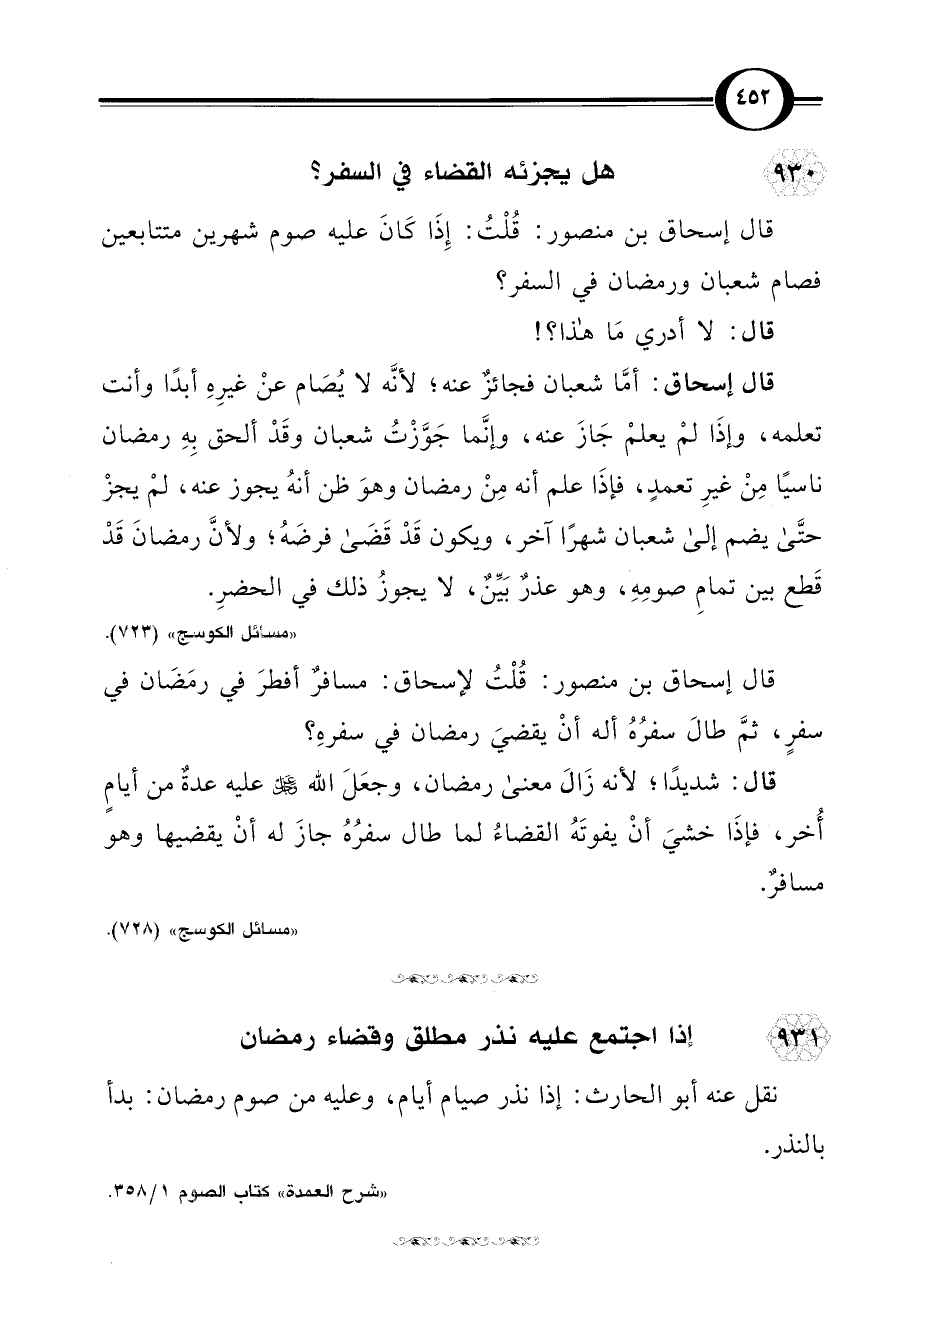 ٤٥٢
٩٣٠ هل يجزئه القضاء في السفر؟
قال إسحاق بن منصور: قُلْتُ: إِذَا كَانَ عليه صوم شهرين متتابعين
فصام شعبان ورمضان في السفر؟
قال: لا أدري مَا هذا؟!
قال إسحاق: أمَّا شعبان فجائزٌ عنه؛ لأنَّه لا يُصَام عنْ غيرِهِ أبدًا وأنت
تعلمه، وإذَا لمْ يعلمْ جَازَ عنه، وإنَّما جَوَّزْتُ شعبان وقَدْ ألحق بِهِ رمضان
ناسيًا مِنْ غيرِ تعمدٍ، فإذَا علم أنه مِنْ رمضان وهوَ ظن أنهُ يجوز عنه، لمْ يجزْ
حتَّىٰ يضم إلىٰ شعبان شهرًا آخر، ويكون قَدْ قَضَىٰ فرضَهُ؛ ولأنَّ رمضانَ قَدْ
قَطع بين تمامِ صومِهِ، وهو عذرٌ بَيِّنٌ، لا يجوزُ ذلك في الحضرِ.
«مسائل الكوسج» (٧٢٣).
قال إسحاق بن منصور: قُلْتُ لإسحاق: مسافرٌ أفطرَ في رمَضَان في
سفرٍ، ثمَّ طالَ سفرُهُ أله أنْ يقضيَ رمضان في سفرهِ؟
قال: شديدًا؛ لأنه زَالَ معنىٰ رمضان، وجعَلَ الله ﷺ عليه عدةٌ من أيامٍ
أُخر، فإذَا خشيَ أنْ يفوتَهُ القضاءُ لما طال سفرُهُ جازَ له أنْ يقضيها وهو
مسافرٌ.
«مسائل الكوسج» (٧٢٨).
٩٣١ إذا اجتمع عليه نذر مطلق وقضاء رمضان
نقل عنه أبو الحارث: إذا نذر صيام أيام، وعليه من صوم رمضان: بدأ
بالنذر.
«شرح العمدة» كتاب الصوم ٣٥٨/١.